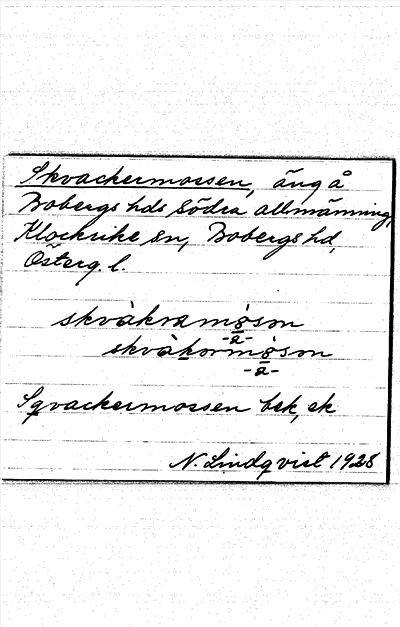 Skvackermossen, äng å
Bobergs hds södra allmänning,
Klockrike sn, Bobergs hd,
Österg. l.
skvàkramòson
-a-
skvàkormòson
-a-
Sqvackermossen bek, ek
N. Lindqvist 1928